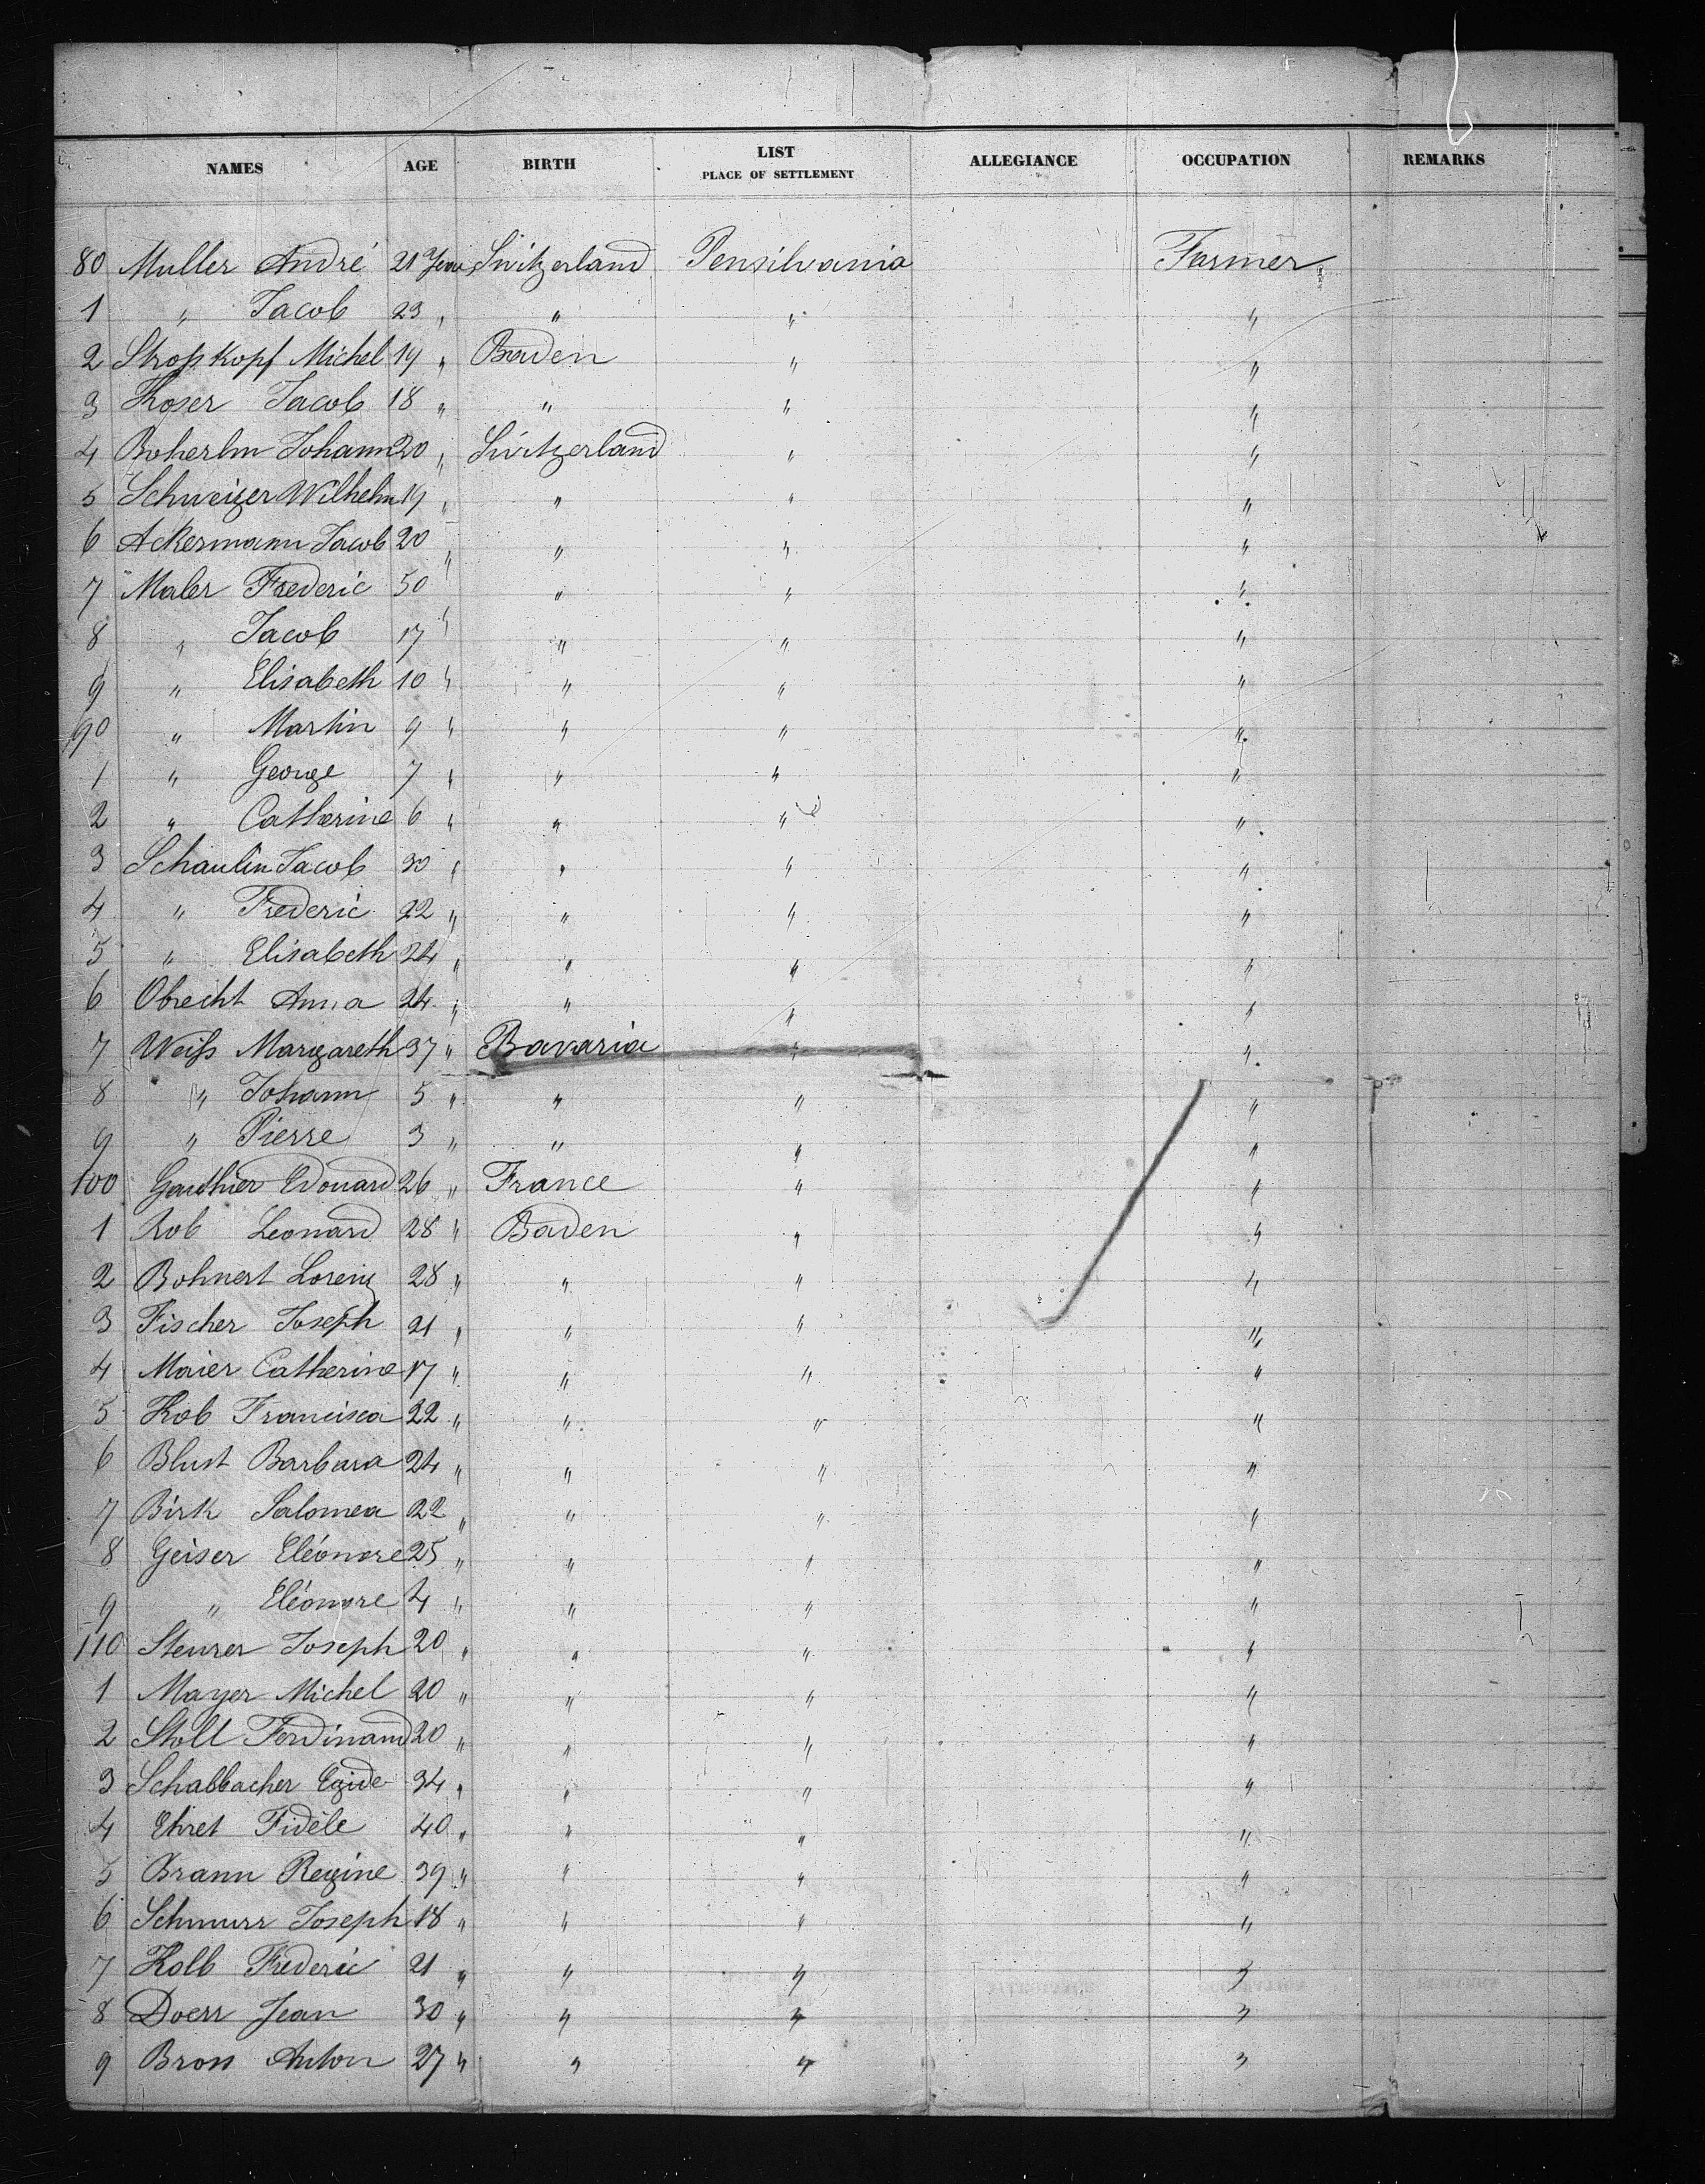 NAMES AGE BIRTH LIST PLACE OF SETTLEMENT ALLEGIANCE OCCUPATION REMARKS
80 Muller André 21 Years Switzerland Pensilvania Farmer
1 " Jacob 23 " " " "
2 Stroßkopf Michel 19 " Baden " "
3 Koser Jacob 18 " " " "
4 Johann 20 " Switzerland " "
5 Schweizer Wilhelm 19 " " " "
6 Ackermann Jacob 20 " " " "
7 Maler Frederic 50 " " " "
8 " Jacob 17 " " " "
9 " Elisabeth 10 " " " "
90 " Martin 9 " " " "
1 " George 7 " " " "
2 " Catherine 6 " " " "
3 Schaulin Jacob 30 " " " "
4 " Frederic 22 " " " "
5 " Elisabeth 24 " " " "
6 Obrecht Anna 24 " " " "
7 Weiß Margareth 37 " Bavaria " "
8 " Johann 5 " " " "
9 " Pierre 3 " " " "
100 Gauthier Edouard 26 " France " "
1 Kob Leonard 28 " Baden " "
2 Bohnert Lorenz 28 " " " "
3 Fischer Joseph 21 " " " "
4 Maier Catherine 17 " " " "
5 Kob Francisca 22 " " " "
6 Blust Barbara 24 " " " "
7 Birk Salomea 22 " " " "
8 Geiser Eléonore 25 " " " "
9 " Eléonore 4 " " " "
110 Steurer Joseph 20 " " " "
1 Mayer Michel 20 " " " "
2 Stoll Ferdinand 20 " " " "
3 Schabbacher Egide 34 " " " "
4 Ehret Fidèle 40 " " " "
5 Brann Regine 39 " " " "
6 Schnurr Joseph 18 " " " "
7 Kolb Frederic 21 " " " "
8 Doerr Jean 30 " " " "
9 Bross Anton 27 " " " "